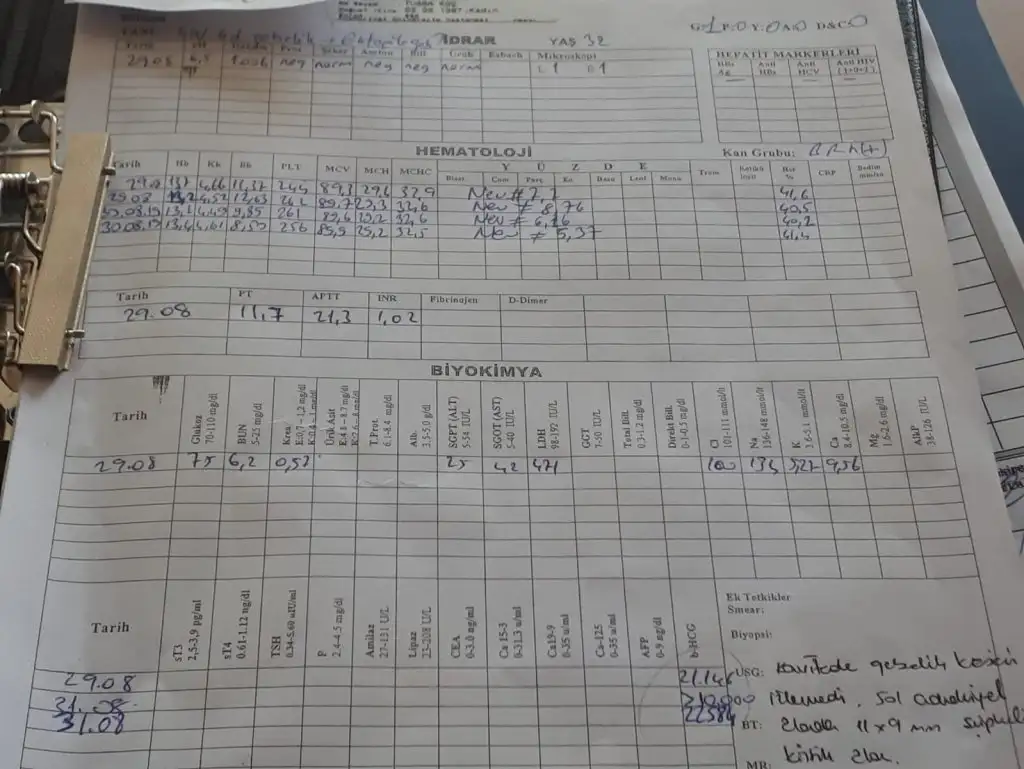 G:1 P:0 Y:0 A:0 D&C:0
İDRAR YAŞ 32
Tarih Şeker Aseton Bili Grub Esbach Mikroskopi
29.08 neg norm neg neg norm
HEPATİT MARKERLERİ
HBs Ag Anti HBs Anti HCV Anti HIV (1+0+2)
HEMATOLOJİ Kan Grubu: Rh(+)
Tarih Hb Kk Bk PLT MCV MCH MCHC YÜZDE Trom CRP Sedim mm/sa
Blast Çom Parç Ko Bazo Lenf Mono Hct %
29.08 13,7 4,66 11,37 244 89,3 29,6 32,9 Neu # 7,7 41,6
29.08 13,2 4,52 12,63 262 89,7 29,3 32,6 Neu # 8,76 40,5
30.08.19 13,1 4,49 9,85 261 89,6 29,2 32,6 Neu # 6,16 40,2
30.08.19 13,4 4,61 8,50 256 89,9 29,2 32,5 Neu # 5,37 41,4
Tarih PT APTT INR Fibrinojen D-Dimer
29.08 11,7 21,3 1,02
BİYOKİMYA
Tarih
Glukoz 70-110 mg/dl
BUN 5-25 mg/dl
Krea E:0,7 – 1,2 mg/dl
Ürik Asit E:4.8 – 8.7 mg/dl
T.Prot. 6.1-8.4 mg/dl
Alb. 3.5-5.0 g/dl
SGPT (ALT) 5-54 IU/L
SGOT (AST) 5-40 IU/L
LDH 98-192 IU/L
GGT 7-50 IU/L
Total Bili. 0.3-1.2 mg/dl
Direkt Bili. 0.1-0.5 mg/dl
Cl 101-111 mmol/lt
Na 136-148 mmol/lt
K 3.6-5.1 mmol/lt
Ca 8.4-10.5 mg/dl
Mg 1.6-2.6 mg/dl
AlkP 38-126 IU/L
29.08 75 6,2 0,52 25 42 471 100 134 5,27 9,56
Tarih
sT3 2,5-3,9 pg/ml
sT4 0.61-1.12 ng/dl
TSH 0.34-5.60 uIU/ml
P 2.4-4.5 mg/dl
Amilaz 27-131 U/L
Lipaz 23-208 U/L
CEA 0-3.0 ng/ml
Ca 15-3 0-31.3 u/ml
Ca19-9 0-35 u/ml
Ca-125 0-35 u/ml
AFP 0-9 ng/ml
b-HCG
Ek Tetkikler
Smear:
Biyopsi:
29.08 21.146
31.08 >10.000
31.08 22584
USG: kavitede gebelik kesesi
izlenmedi, sol adneksiyel
BT: alanda 11x9 mm şüpheli
MR: kistik alan.